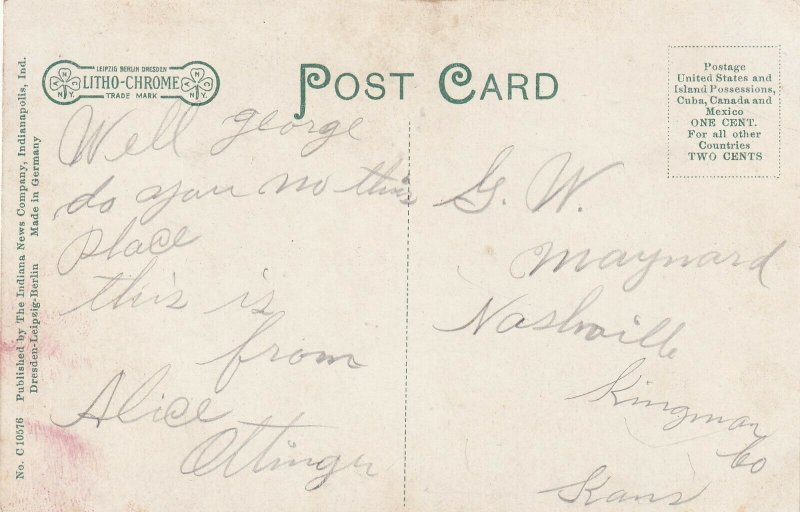 LEIPZIG BERLIN DRESDEN
LITHO-CHROME
TRADE MARK
ANC NY
ANC NY
POST CARD
Postage
United States and
Island Possessions,
Cuba, Canada and
Mexico
ONE CENT.
For all other
Countries
TWO CENTS
No. C 10576 Published by The Indiana News Company, Indianapolis, Ind.
Dresden-Leipzig-Berlin Made in Germany
Well george
do you no this
place
this is
from
Alice
Ottinger
G. W.
Maynard
Nashville
Kingman
Co
Kans